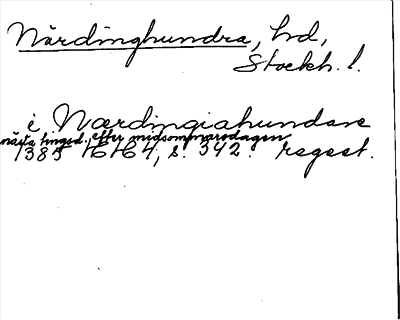 Närdinghundra, hd,
Stockh. l.
i Nærdingiahundare
nästa tingsd. efter midsommarsdagen
1385 HH 4, s. 342. regest.